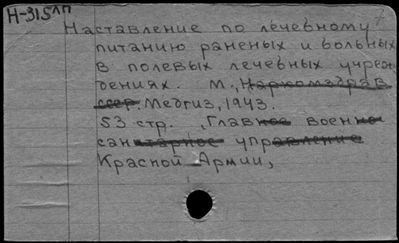 Н-315лп
Наставление по лечебному
питанию раненых и больных
в полевых лечебных учреж-
дениях. М., Наркомздрав
ссср. Медгиз, 1943.
53 стр. , Главное военно
санитарное управление
Красной Армии,